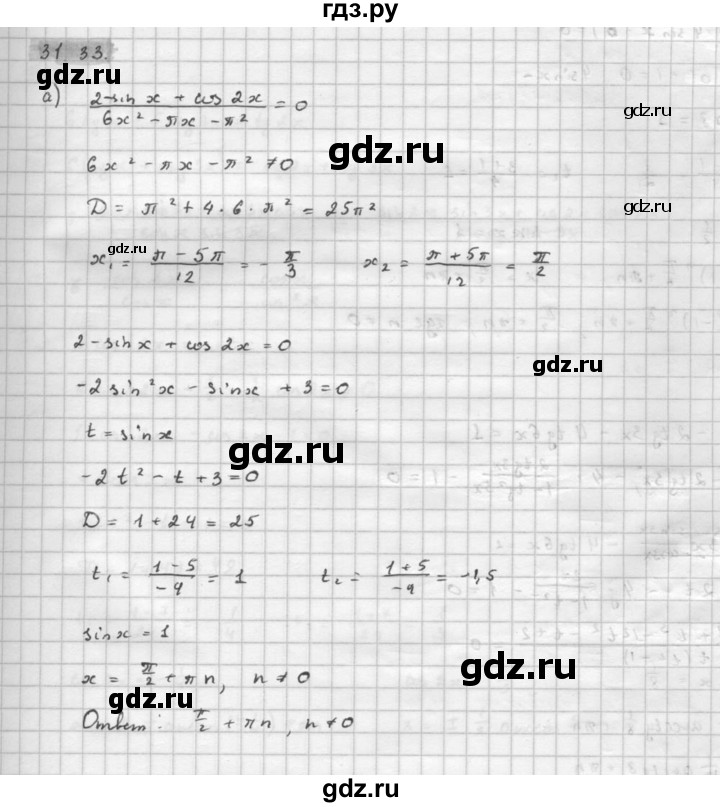 гдз.ру
31.33.
gdz.ru
а) (2 - sin x + cos 2x)/(6x² - πx - π²) = 0
gdz.ru
gdz.ru
6x² - πx - π² ≠ 0
gdz.ru
D = π² + 4 · 6 · π² = 25π²
gdz.ru
x₁ = (π - 5π)/12 = - π/3   x₂ = (π + 5π)/12 = π/2
2 - sin x + cos 2x = 0
gdz.ru
-2 sin² x - sin x + 3 = 0
t = sin x
gdz.ru
-2t² - t + 3 = 0
D = 1 + 24 = 25
t₁ = (1 - 5)/-4 = 1   t₂ = (1 + 5)/-4 = -1,5
sin x = 1
gdz.ru
x = π/2 + πn, n ≠ 0
gdz.ru
Ответ: π/2 + πn, n ≠ 0
gdz.ru